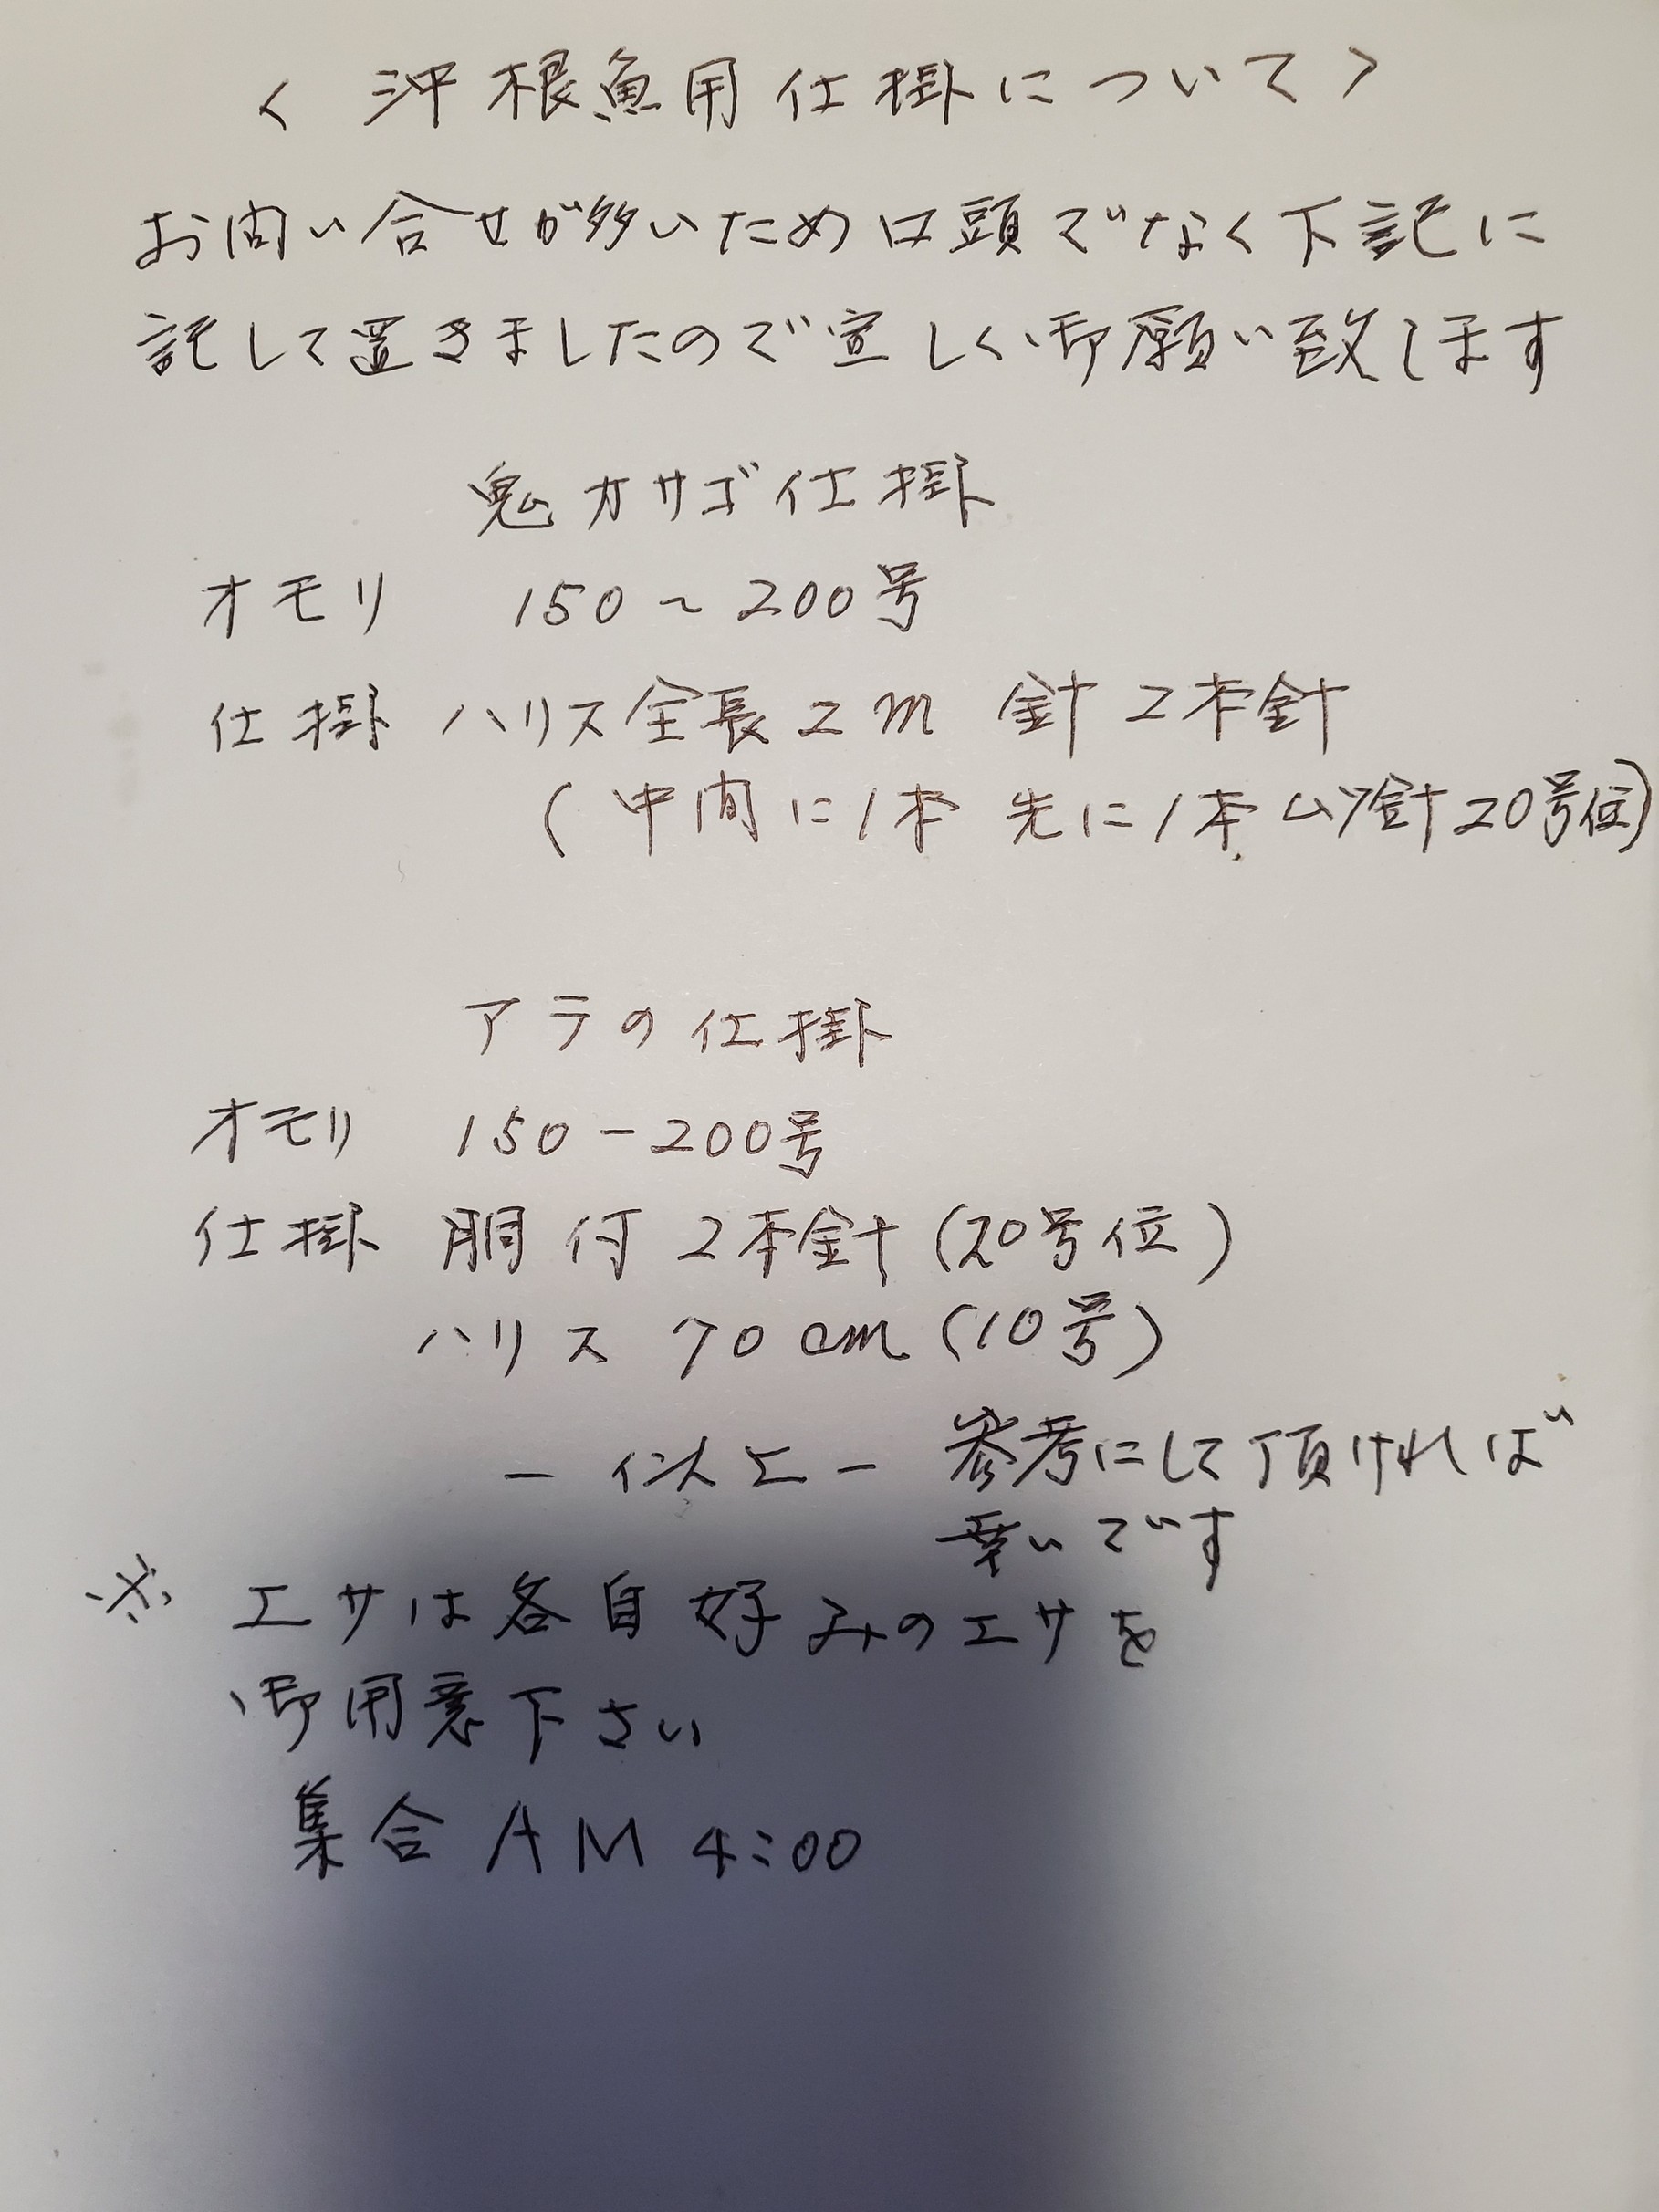 〈 沖根魚用仕掛について 〉
お問い合せが多いため口頭でなく下記に
記して置きましたので宜しく御願い致します
鬼カサゴ仕掛
オモリ 150～200号
仕掛 ハリス全長2m 針2本針
(中間に1本 先に1本 ムツ針20号位)
アラの仕掛
オモリ 150-200号
仕掛 胴付2本針(20号位)
ハリス 70cm(10号)
-以上- 参考にして頂ければ
幸いです
※ エサは各自好みのエサを
御用意下さい
集合 AM 4:00